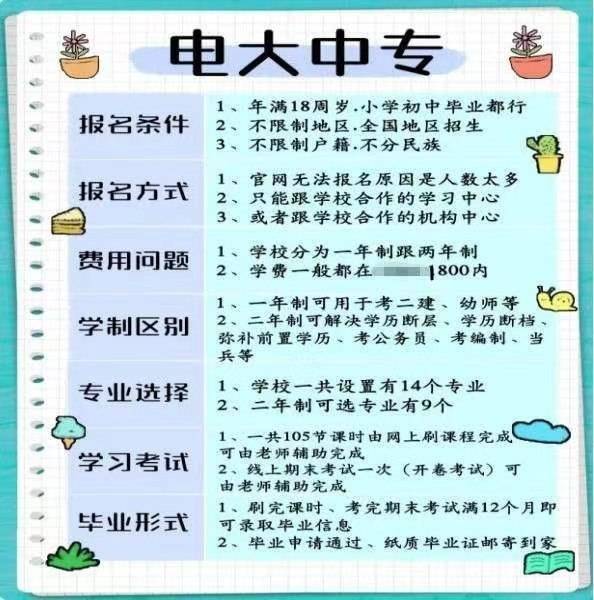 电大中专
报名条件
1、年满18周岁.小学初中毕业都行
2、不限制地区.全国地区招生
3、不限制户籍.不分民族
报名方式
1、官网无法报名原因是人数太多
2、只能跟学校合作的学习中心
3、或者跟学校合作的机构中心
费用问题
1、学校分为一年制跟两年制
2、学费一般都在 1800内
学制区别
1、一年制可用于考二建、幼师等
2、二年制可解决学历断层、学历断档、
弥补前置学历、考公务员、考编制、当
兵等
专业选择
1、学校一共设置有14个专业
2、二年制可选专业有9个
学习考试
1、一共105节课时由网上刷课程完成
可由老师辅助完成
2、线上期末考试一次（开卷考试）可
由老师辅助完成
毕业形式
1、刷完课时、考完期末考试满12个月即
可录取毕业信息
2、毕业申请通过、纸质毕业证邮寄到家